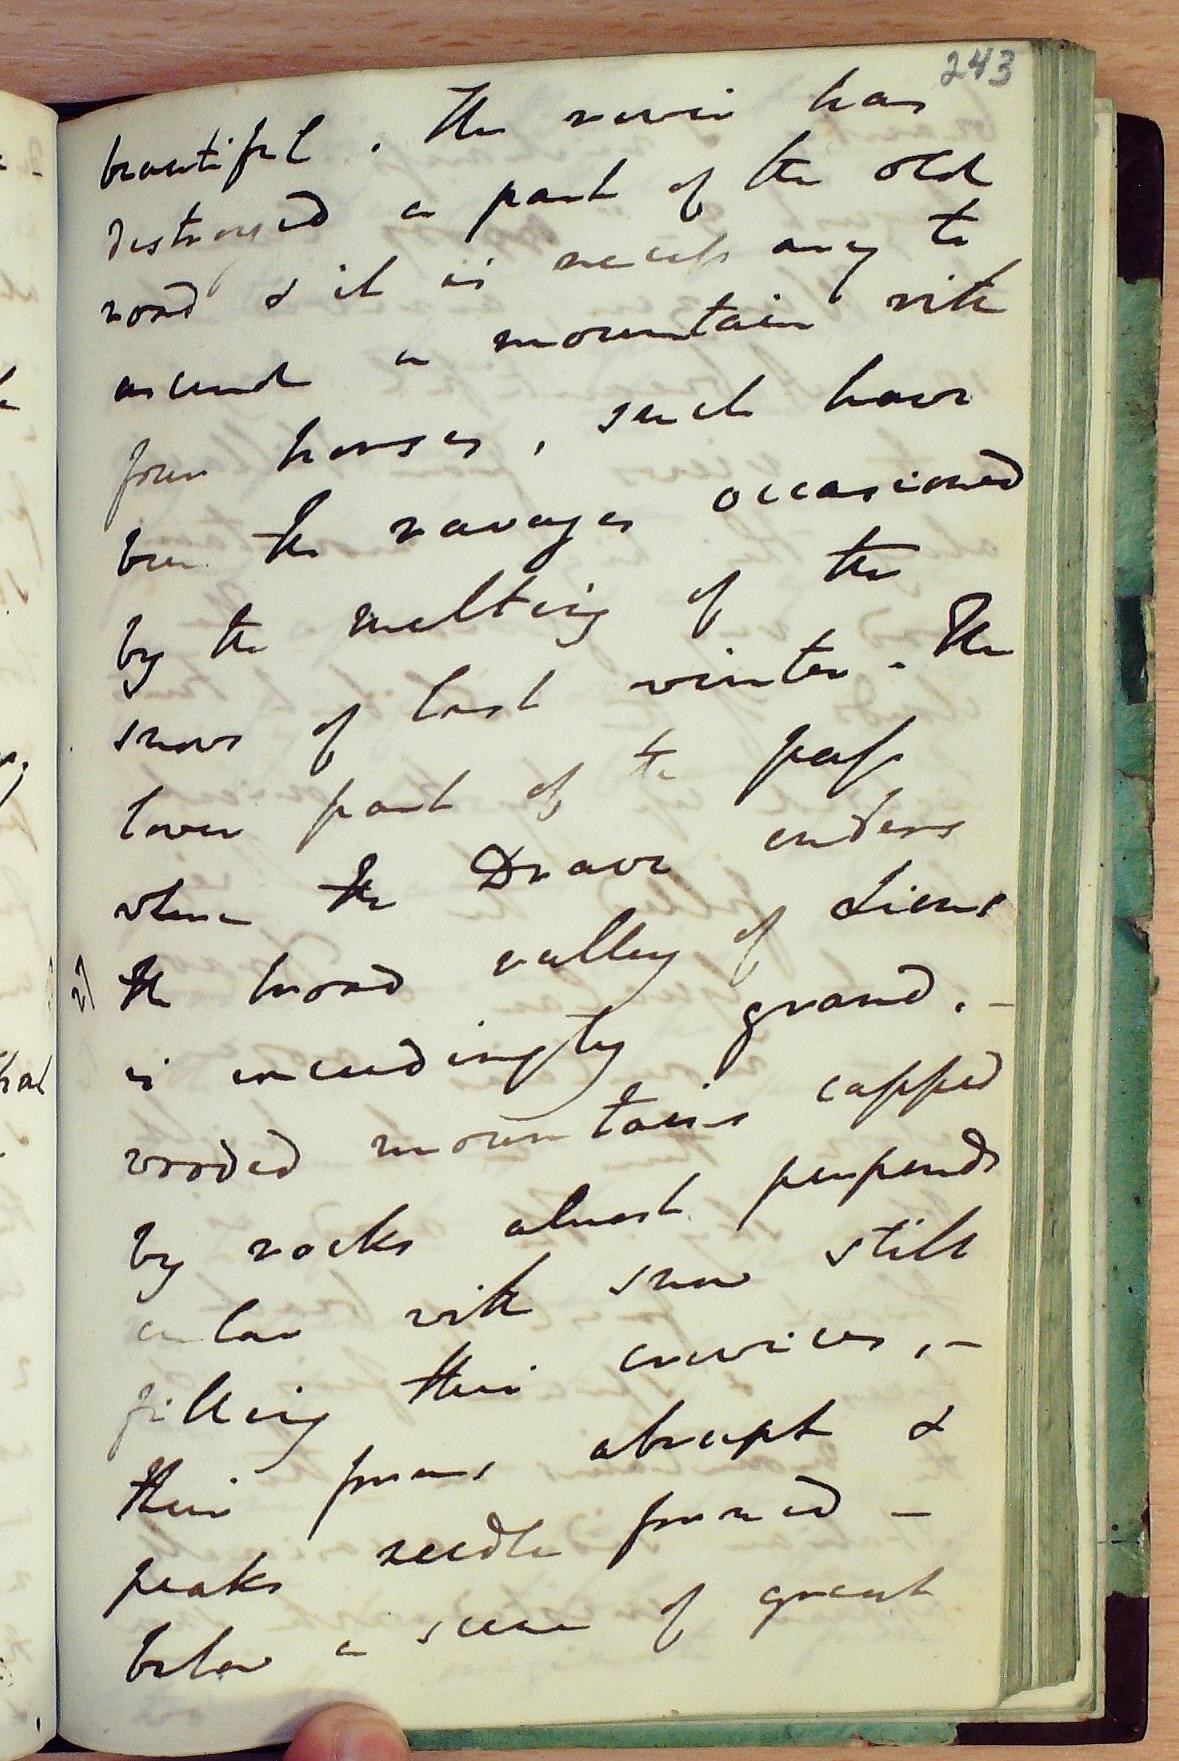 243
beautiful. The river has
destroyed a part of the old
road & it is necessary to
ascend a mountain with
four horses, such have
been the ravages occasioned
by the melting of the
snows of last winter. The
lower part of the pass
where the Drave enters
27 the broad valley of Lienz
is exceedingly grand. -
wooded mountains capped
by rocks almost perpendi
cular with snow still
filling their crevices, -
their forms abrupt &
peaks needle formed -
below a scene of great